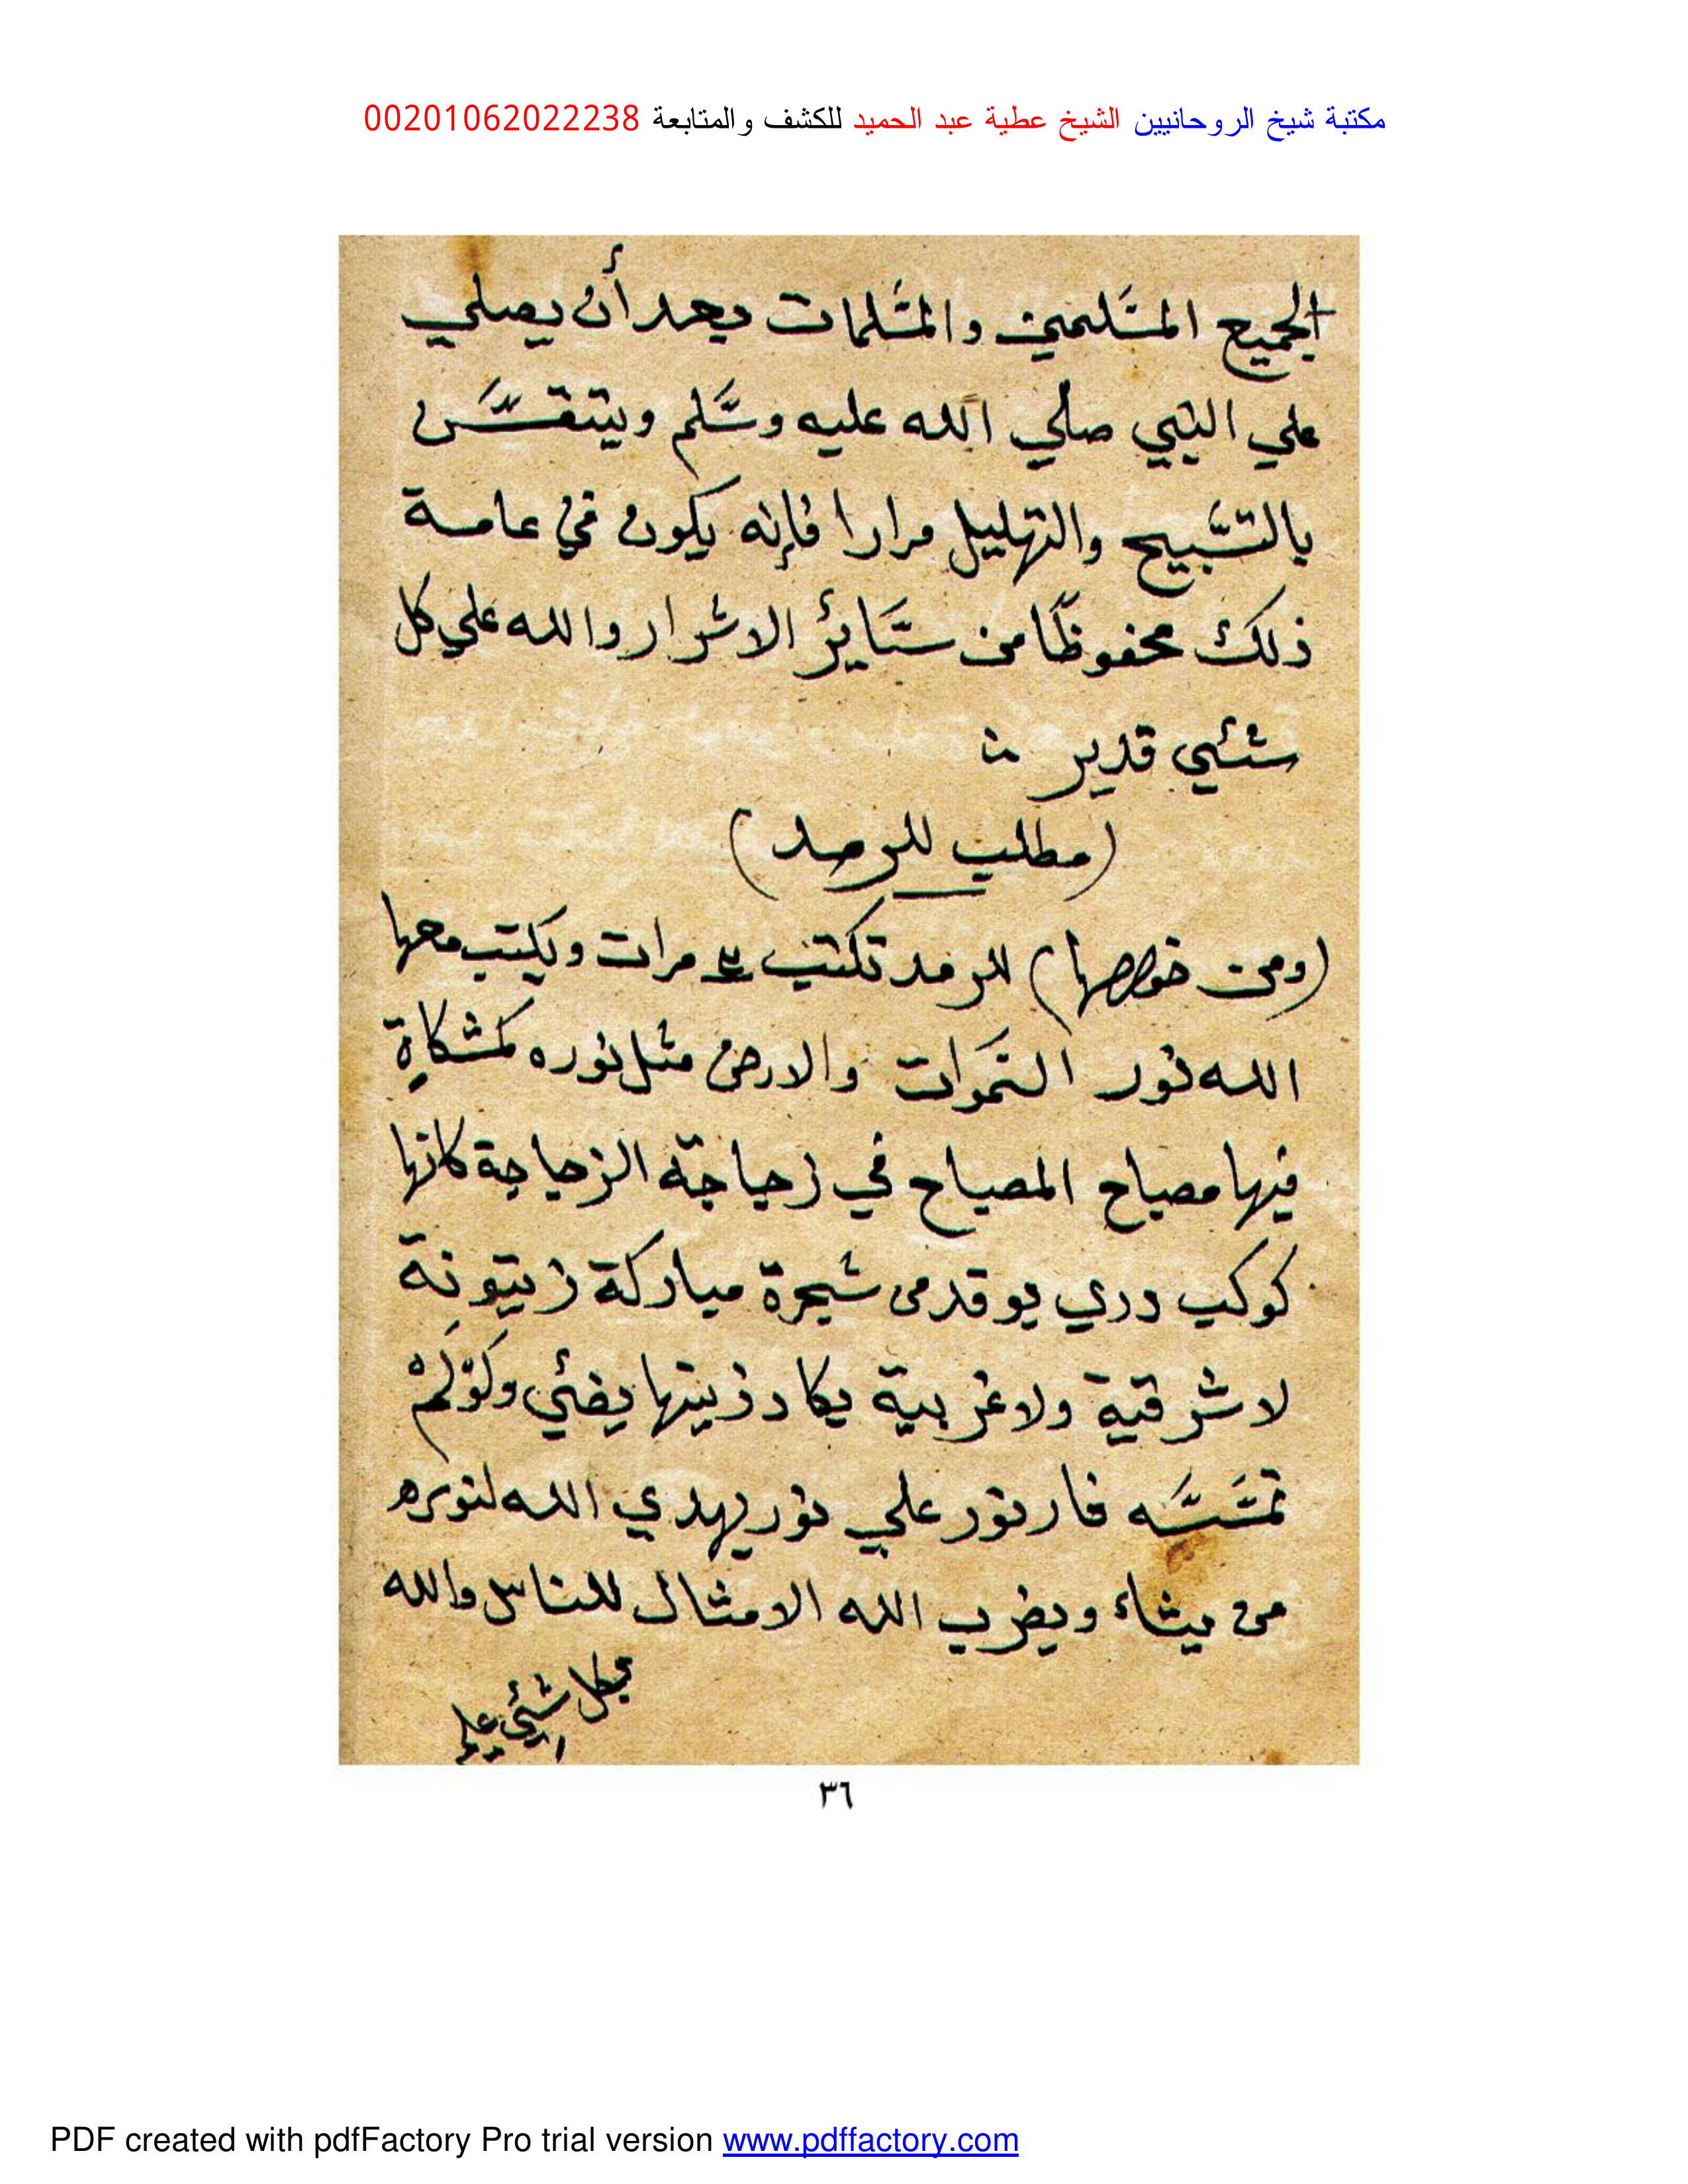 مكتبة شيخ الروحانيين الشيخ عطية عبد الحميد للكشف والمتابعة 00201062022238
الجميع المسلمين والمسلمات بعد أن يصلي
علي النبي صلي الله عليه وسلم ويتنفس
بالتسبيح والتهليل مرارا فإنه يكون في عامة
ذلك محفوظا من سائر الاشرار والله علي كل
شئي قدير
(مطلب للرمد)
(ومن خواصها) للرمد تكتب مرات ويكتب معها
الله نور السموات والارض مثل نوره كمشكاة
فيها مصباح المصباح في زجاجة الزجاجة كانها
كوكب دري يوقد من شجرة مباركة زيتونة
لا شرقية ولا غربية يكاد زيتها يضئي ولَوْ لَمْ
تمسسه نار نور علي نور يهدي الله لنوره
من يشاء ويضرب الله الامثال للناس والله
بكل شئي عليم
٣٦
PDF created with pdfFactory Pro trial version www.pdffactory.com